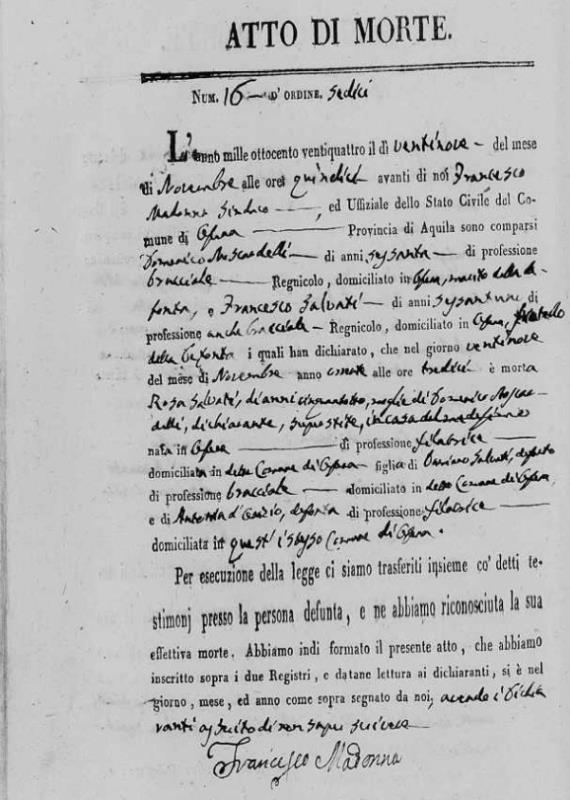 ATTO DI MORTE.
NUM. 16 — D'ORDINE. sedici
L'anno mille ottocento ventiquattro il dì ventinove — del mese
di Novembre alle ore quindici avanti di noi Francesco
Madonna Sindaco —, ed Uffiziale dello Stato Civile del Co-
mune di — Provincia di Aquila sono comparsi
Domenico — di anni sessanta — di professione
bracciale — Regnicolo, domiciliato in marito della de-
fonta, e Francesco Salvati — di anni di
professione anche bracciale — Regnicolo, domiciliato in fratello
della defonta i quali han dichiarato, che nel giorno ventinove
del mese di Novembre anno corrente alle ore tredici è morta
Rosa Salvati, di anni cinquantotto, moglie di Domenico
dichiarante, superstite, in casa del medesimo
nata in — di professione filatrice —
domiciliata in detto Comune di figlia di Damiano Salvati, defonto
di professione bracciale — domiciliato in detto Comune di
e di Antonia d'Orazio, defonta di professione filatrice —
domiciliata in quest'istesso Comune di
Per esecuzione della legge ci siamo trasferiti insieme co' detti te-
stimonj presso la persona defunta, e ne abbiamo riconosciuta la sua
effettiva morte. Abbiamo indi formato il presente atto, che abbiamo
inscritto sopra i due Registri, e datane lettura ai dichiaranti, si è nel
giorno, mese, ed anno come sopra segnato da noi, avendo i dichia-
ranti asserito di non saper scrivere
Francesco Madonna